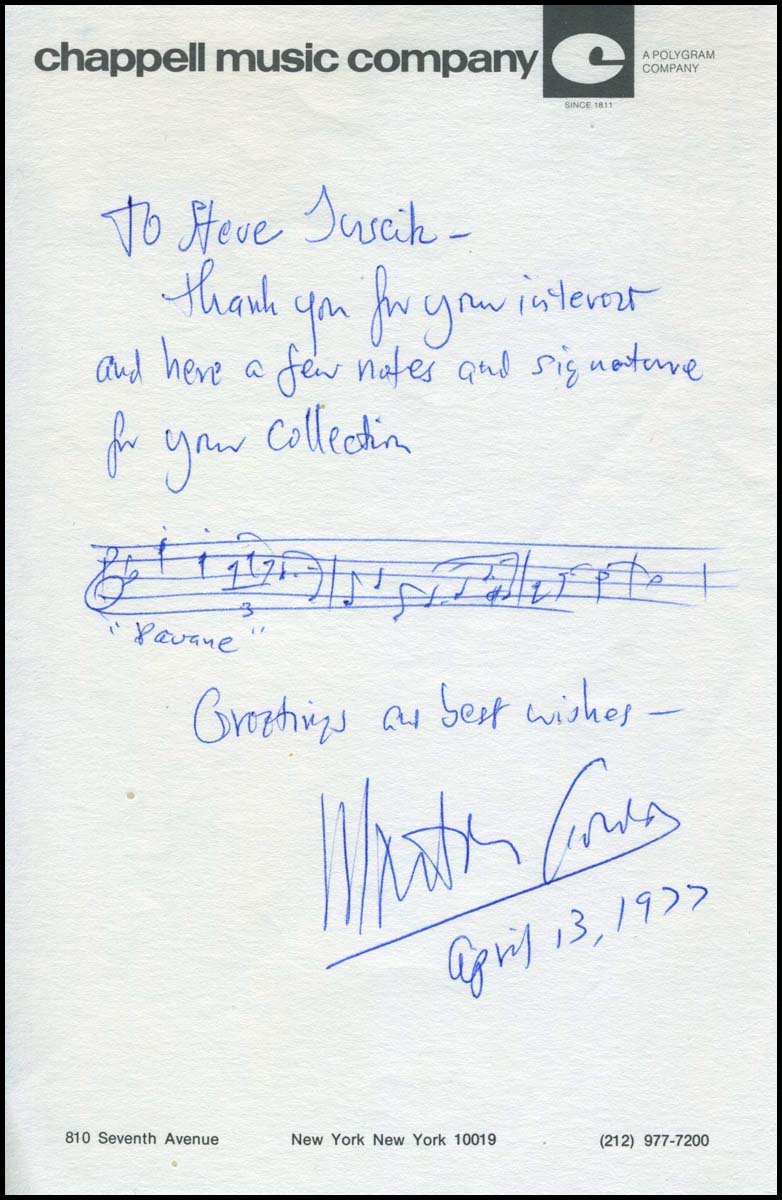 chappell music company
A POLYGRAM
COMPANY
SINCE 1811
To Steve
Thank you for your interest
and here a few notes and signature
for your collection
3
"Pavane"
Greetings and best wishes —
Morton Gould
April 13, 1977
810 Seventh Avenue New York New York 10019 (212) 977-7200